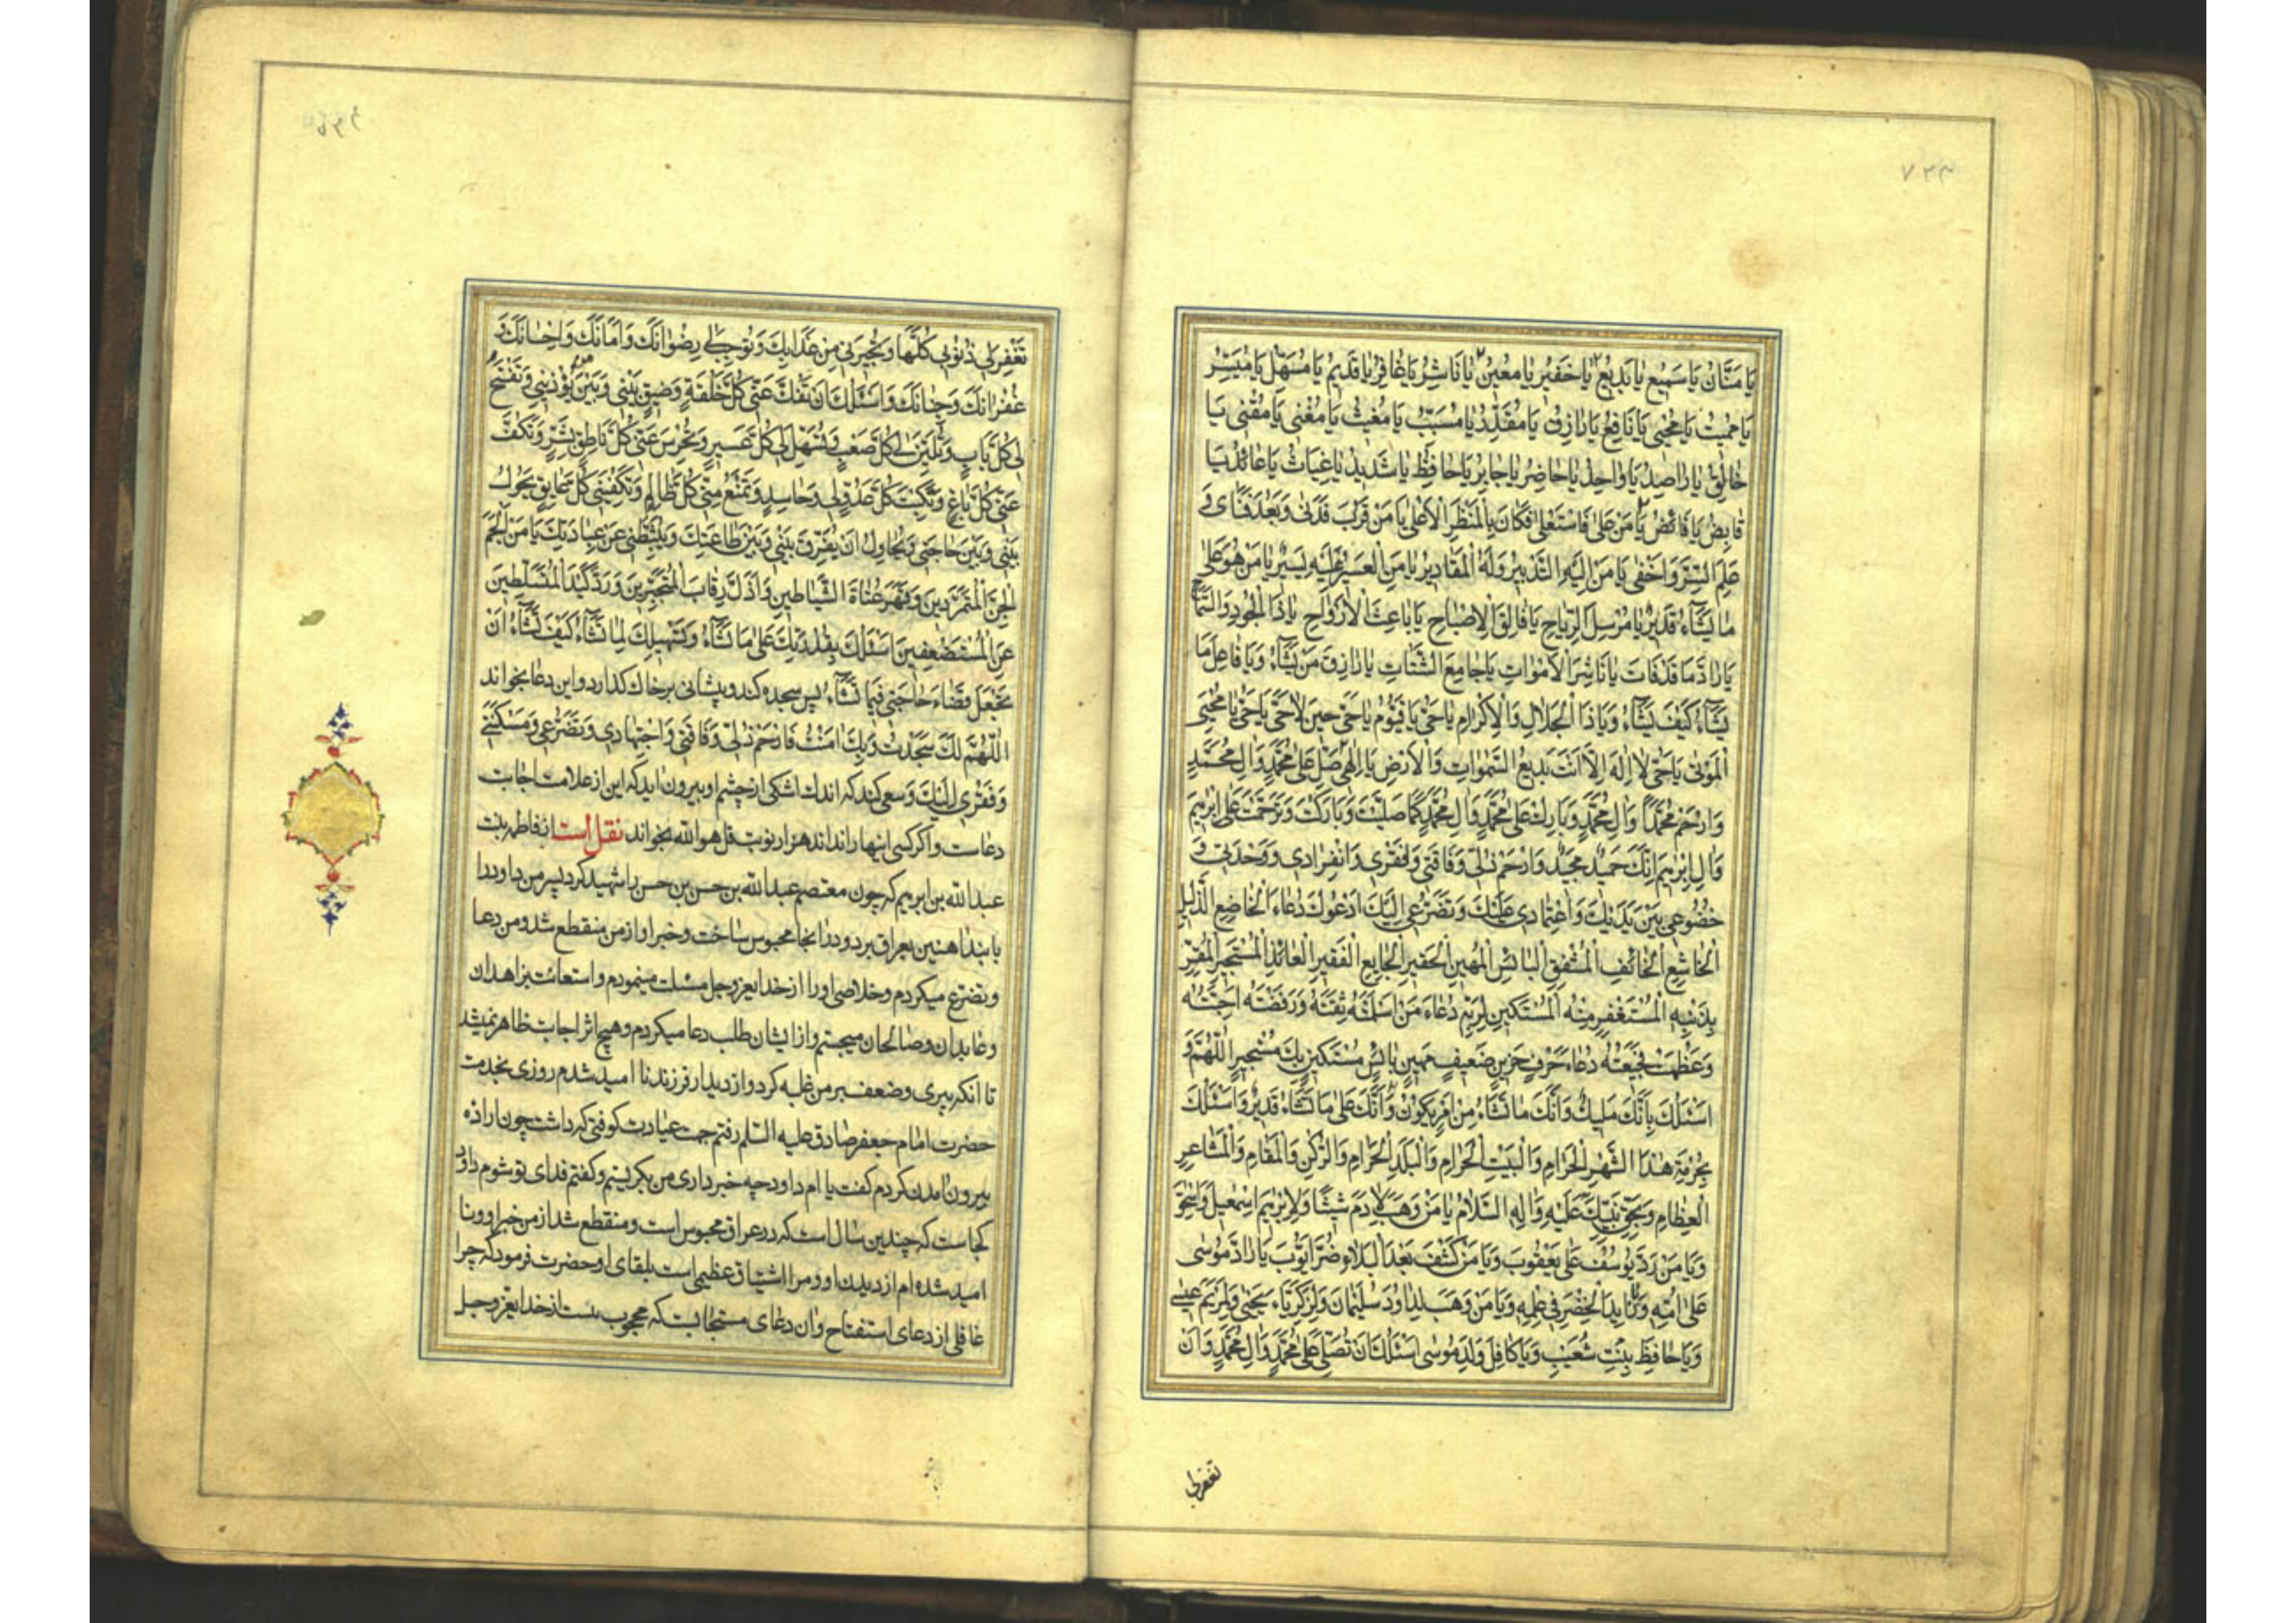 يَا مَنَّانُ يَا سَمِيعُ يَا بَدِيعُ يَا خَفِيرُ يَا مُعِينُ يَا نَاشِرُ يَا غَافِرُ يَا قَدِيمُ يَا مُسَهِّلُ يَا مُيَسِّرُ
يَا مُمِيتُ يَا مُحْيِي يَا نَافِعُ يَا رَازِقُ يَا مُقْتَدِرُ يَا مُسَبِّبُ يَا مُغِيثُ يَا مُغْنِي يَا مُقْنِي يَا
خَالِقُ يَا رَاصِدُ يَا وَاحِدُ يَا حَاضِرُ يَا جَابِرُ يَا حَافِظُ يَا شَدِيدُ يَا غِيَاثُ يَا عَائِدُ يَا
قَابِضُ يَا مَنْ عَلَى فَاسْتَعْلَى فَكَانَ بِالْمَنْظَرِ الْأَعْلَى يَا مَنْ قَرُبَ فَدَنَى وَبَعُدَ فَنَاى وَ
عَلِمَ السِّرَّ وَاَخْفَى يَا مَنْ اِلَيْهِ التَّدْبِيرُ وَلَهُ الْمَقَادِيرُ يَا مَنِ الْعَسِيرُ عَلَيْهِ يَسِيرٌ يَا مَنْ هُوَ عَلَى
مَا يَشَآءُ قَدِيرٌ يَا مُرْسِلَ الرِّيَاحِ يَا فَالِقَ الْاِصْبَاحِ يَا بَاعِثَ الْاَرْوَاحِ يَا ذَا الْجُودِ وَالسَّمَاحِ
يَا رَادَّ مَا قَدْ فَاتَ يَا نَاشِرَ الْاَمْوَاتِ يَا جَامِعَ الشَّتَاتِ يَا رَازِقَ مَنْ يَشَآءُ وَيَا فَاعِلَ مَا
يَشَآءُ كَيْفَ يَشَآءُ وَيَا ذَا الْجَلَالِ وَالْاِكْرَامِ يَا حَيُّ يَا قَيُّومُ يَا حَيُّ حِينَ لَا حَيَّ يَا حَيُّ يَا مُحْيِيَ
الْمَوْتَى يَا حَيُّ لَا اِلٰهَ اِلَّا اَنْتَ بَدِيعُ السَّمٰوَاتِ وَالْاَرْضِ يَا اِلٰهِي صَلِّ عَلَى مُحَمَّدٍ وَآلِ مُحَمَّدٍ
وَارْحَمْ مُحَمَّدًا وَآلَ مُحَمَّدٍ وَبَارِكْ عَلَى مُحَمَّدٍ وَآلِ مُحَمَّدٍ كَمَا صَلَّيْتَ وَبَارَكْتَ وَتَرَحَّمْتَ عَلَى اِبْرٰهِيمَ
وَآلِ اِبْرٰهِيمَ اِنَّكَ حَمِيدٌ مَجِيدٌ وَارْحَمْ ذُلِّي وَفَاقَتِي وَفَقْرِي وَانْفِرَادِي وَوَحْدَتِي وَ
خُضُوعِي بَيْنَ يَدَيْكَ وَاعْتِمَادِي عَلَيْكَ وَتَضَرُّعِي اِلَيْكَ اَدْعُوكَ دُعَاءَ الْخَاضِعِ الذَّلِيلِ
الْخَاشِعِ الْخَائِفِ الْمُشْفِقِ الْبَائِسِ الْمَهِينِ الْحَقِيرِ الْجَايِعِ الْفَقِيرِ الْعَائِذِ الْمُسْتَجِيرِ الْمُقِرِّ
بِذَنْبِهِ الْمُسْتَغْفِرِ مِنْهُ الْمُسْتَكِينِ لِرَبِّهِ دُعَاءَ مَنْ اَسْلَمَتْهُ ثِقَتُهُ وَرَفَضَتْهُ اَحِبَّتُهُ
وَعَظُمَتْ فَجِيعَتُهُ دُعَاءَ حَرِقٍ حَزِينٍ ضَعِيفٍ مَهِينٍ بَائِسٍ مُسْتَكِينٍ بِكَ مُسْتَجِيرٍ اَللّٰهُمَّ وَ
اَسْئَلُكَ بِاَنَّكَ مَلِيكٌ وَاَنَّكَ مَا تَشَاءُ مِنْ اَمْرٍ يَكُونُ وَاَنَّكَ عَلَى مَا تَشَاءُ قَدِيرٌ وَاَسْئَلُكَ
بِحُرْمَةِ هٰذَا الشَّهْرِ الْحَرَامِ وَالْبَيْتِ الْحَرَامِ وَالْبَلَدِ الْحَرَامِ وَالرُّكْنِ وَالْمَقَامِ وَالْمَشَاعِرِ
الْعِظَامِ وَبِحَقِّ نَبِيِّكَ عَلَيْهِ وَآلِهِ السَّلَامُ يَا مَنْ وَهَبَ لِاٰدَمَ شِيثًا وَلِاِبْرٰهِيمَ اِسْمٰعِيلَ وَاِسْحٰقَ
وَيَا مَنْ رَدَّ يُوسُفَ عَلَى يَعْقُوبَ وَيَا مَنْ كَشَفَ بَعْدَ الْبَلَاءِ ضُرَّ اَيُّوبَ يَا رَادَّ مُوسَى
عَلَى اُمِّهِ وَزَايِدَ الْخِضْرِ فِي عِلْمِهِ وَيَا مَنْ وَهَبَ لِدَاوُدَ سُلَيْمَانَ وَلِزَكَرِيَّاءَ يَحْيَى وَلِمَرْيَمَ عِيسَى
وَيَا حَافِظَ بِنْتِ شُعَيْبٍ وَيَا كَافِلَ وَلَدِ مُوسَى اَسْئَلُكَ اَنْ تُصَلِّيَ عَلَى مُحَمَّدٍ وَآلِ مُحَمَّدٍ وَاَنْ
تغفرلی
تَغْفِرَ لِي ذُنُوبِي كُلَّهَا وَتُجِيرَنِي مِنْ عَذَابِكَ وَتُوجِبَ لِي رِضْوَانَكَ وَاَمَانَكَ وَاِحْسَانَكَ وَ
غُفْرَانَكَ وَجِنَانَكَ وَاَسْئَلُكَ اَنْ تَفُكَّ عَنِّي كُلَّ حَلْقَةٍ وَضِيقٍ بَيْنِي وَبَيْنَ مَنْ يُؤْذِينِي وَتَفْتَحَ
لِي كُلَّ بَابٍ وَتُلَيِّنَ لِي كُلَّ صَعْبٍ وَتُسَهِّلَ لِي كُلَّ عَسِيرٍ وَتُخْرِسَ عَنِّي كُلَّ نَاطِقٍ بِشَرٍّ وَتَكُفَّ
عَنِّي كُلَّ بَاغٍ وَتَكْبِتَ كُلَّ عَدُوٍّ لِي وَحَاسِدٍ وَتَمْنَعَ مِنِّي كُلَّ ظَالِمٍ وَتَكْفِيَنِي كُلَّ عَايِقٍ يَحُولُ
بَيْنِي وَبَيْنَ حَاجَتِي وَيُحَاوِلُ اَنْ يُفَرِّقَ بَيْنِي وَبَيْنَ طَاعَتِكَ وَيُثَبِّطَنِي عَنْ عِبَادَتِكَ يَا مَنْ اَلْجَمَ
الْجِنَّ الْمُتَمَرِّدِينَ وَقَهَرَ عُتَاةَ الشَّيَاطِينِ وَاَذَلَّ رِقَابَ الْمُتَجَبِّرِينَ وَرَدَّ كَيْدَ الْمُتَسَلِّطِينَ
عَنِ الْمُسْتَضْعَفِينَ اَسْئَلُكَ بِقُدْرَتِكَ عَلَى مَا تَشَآءُ وَتَسْهِيلِكَ لِمَا تَشَآءُ كَيْفَ تَشَآءُ اَنْ
تَجْعَلَ قَضَاءَ حَاجَتِي فِيمَا تَشَآءُ پس سجده کند و پیشانی بر خاک کذارد و این دعا بخواند
اَللّٰهُمَّ لَكَ سَجَدْتُ وَبِكَ اٰمَنْتُ فَارْحَمْ ذُلِّي وَفَاقَتِي وَاجْتِهَادِي وَتَضَرُّعِي وَمَسْكَنَتِي
وَفَقْرِي اِلَيْكَ و سعی کند که اندک اشکی از چشم او بیرون اید که این از علامت اجابت
دعاست و اکر کسی اینها را نداند هزار نوبت قل هو الله بخواند نقل است از فاطمه بنت
عبدالله بن ابرهیم که چون معتصم عبدالله بن حسن بن حسن را شهید کرد پسر من داود را
با بند اهنین بعراق برد و در انجا محبوس ساخت و خبر او از من منقطع شد و من دعا
و تضرع میکردم و خلاصی او را از خدایعز وجل مسئلت مینمودم و استعانت بزاهدان
و عابدان و صالحان میجستم و از ایشان طلب دعا میکردم و هیچ اثر اجابت ظاهر نمیشد
تا انکه پیری و ضعف بر من غلبه کرد و از دیدار فرزند نا امید شدم روزی بخدمت
حضرت امام جعفر صادق علیه السلم رفتم جهت عیادت کوفتی که داشت چون اراده
بیرون امدن کردم کفت یا ام داود چه خبر داری من بکریستم و کفتم فدای تو شوم داود
کجاست که چندین سال است که در عراق محبوس است و منقطع شد از من خبر او و نا
امید شده ام از دیدن او و مرا اشتیاق عظیمی است بلقای او حضرت فرمود که چرا
غافلی از دعای استفتاح و ان دعای مستجابیست که محجوب نیست از خدایعز وجل